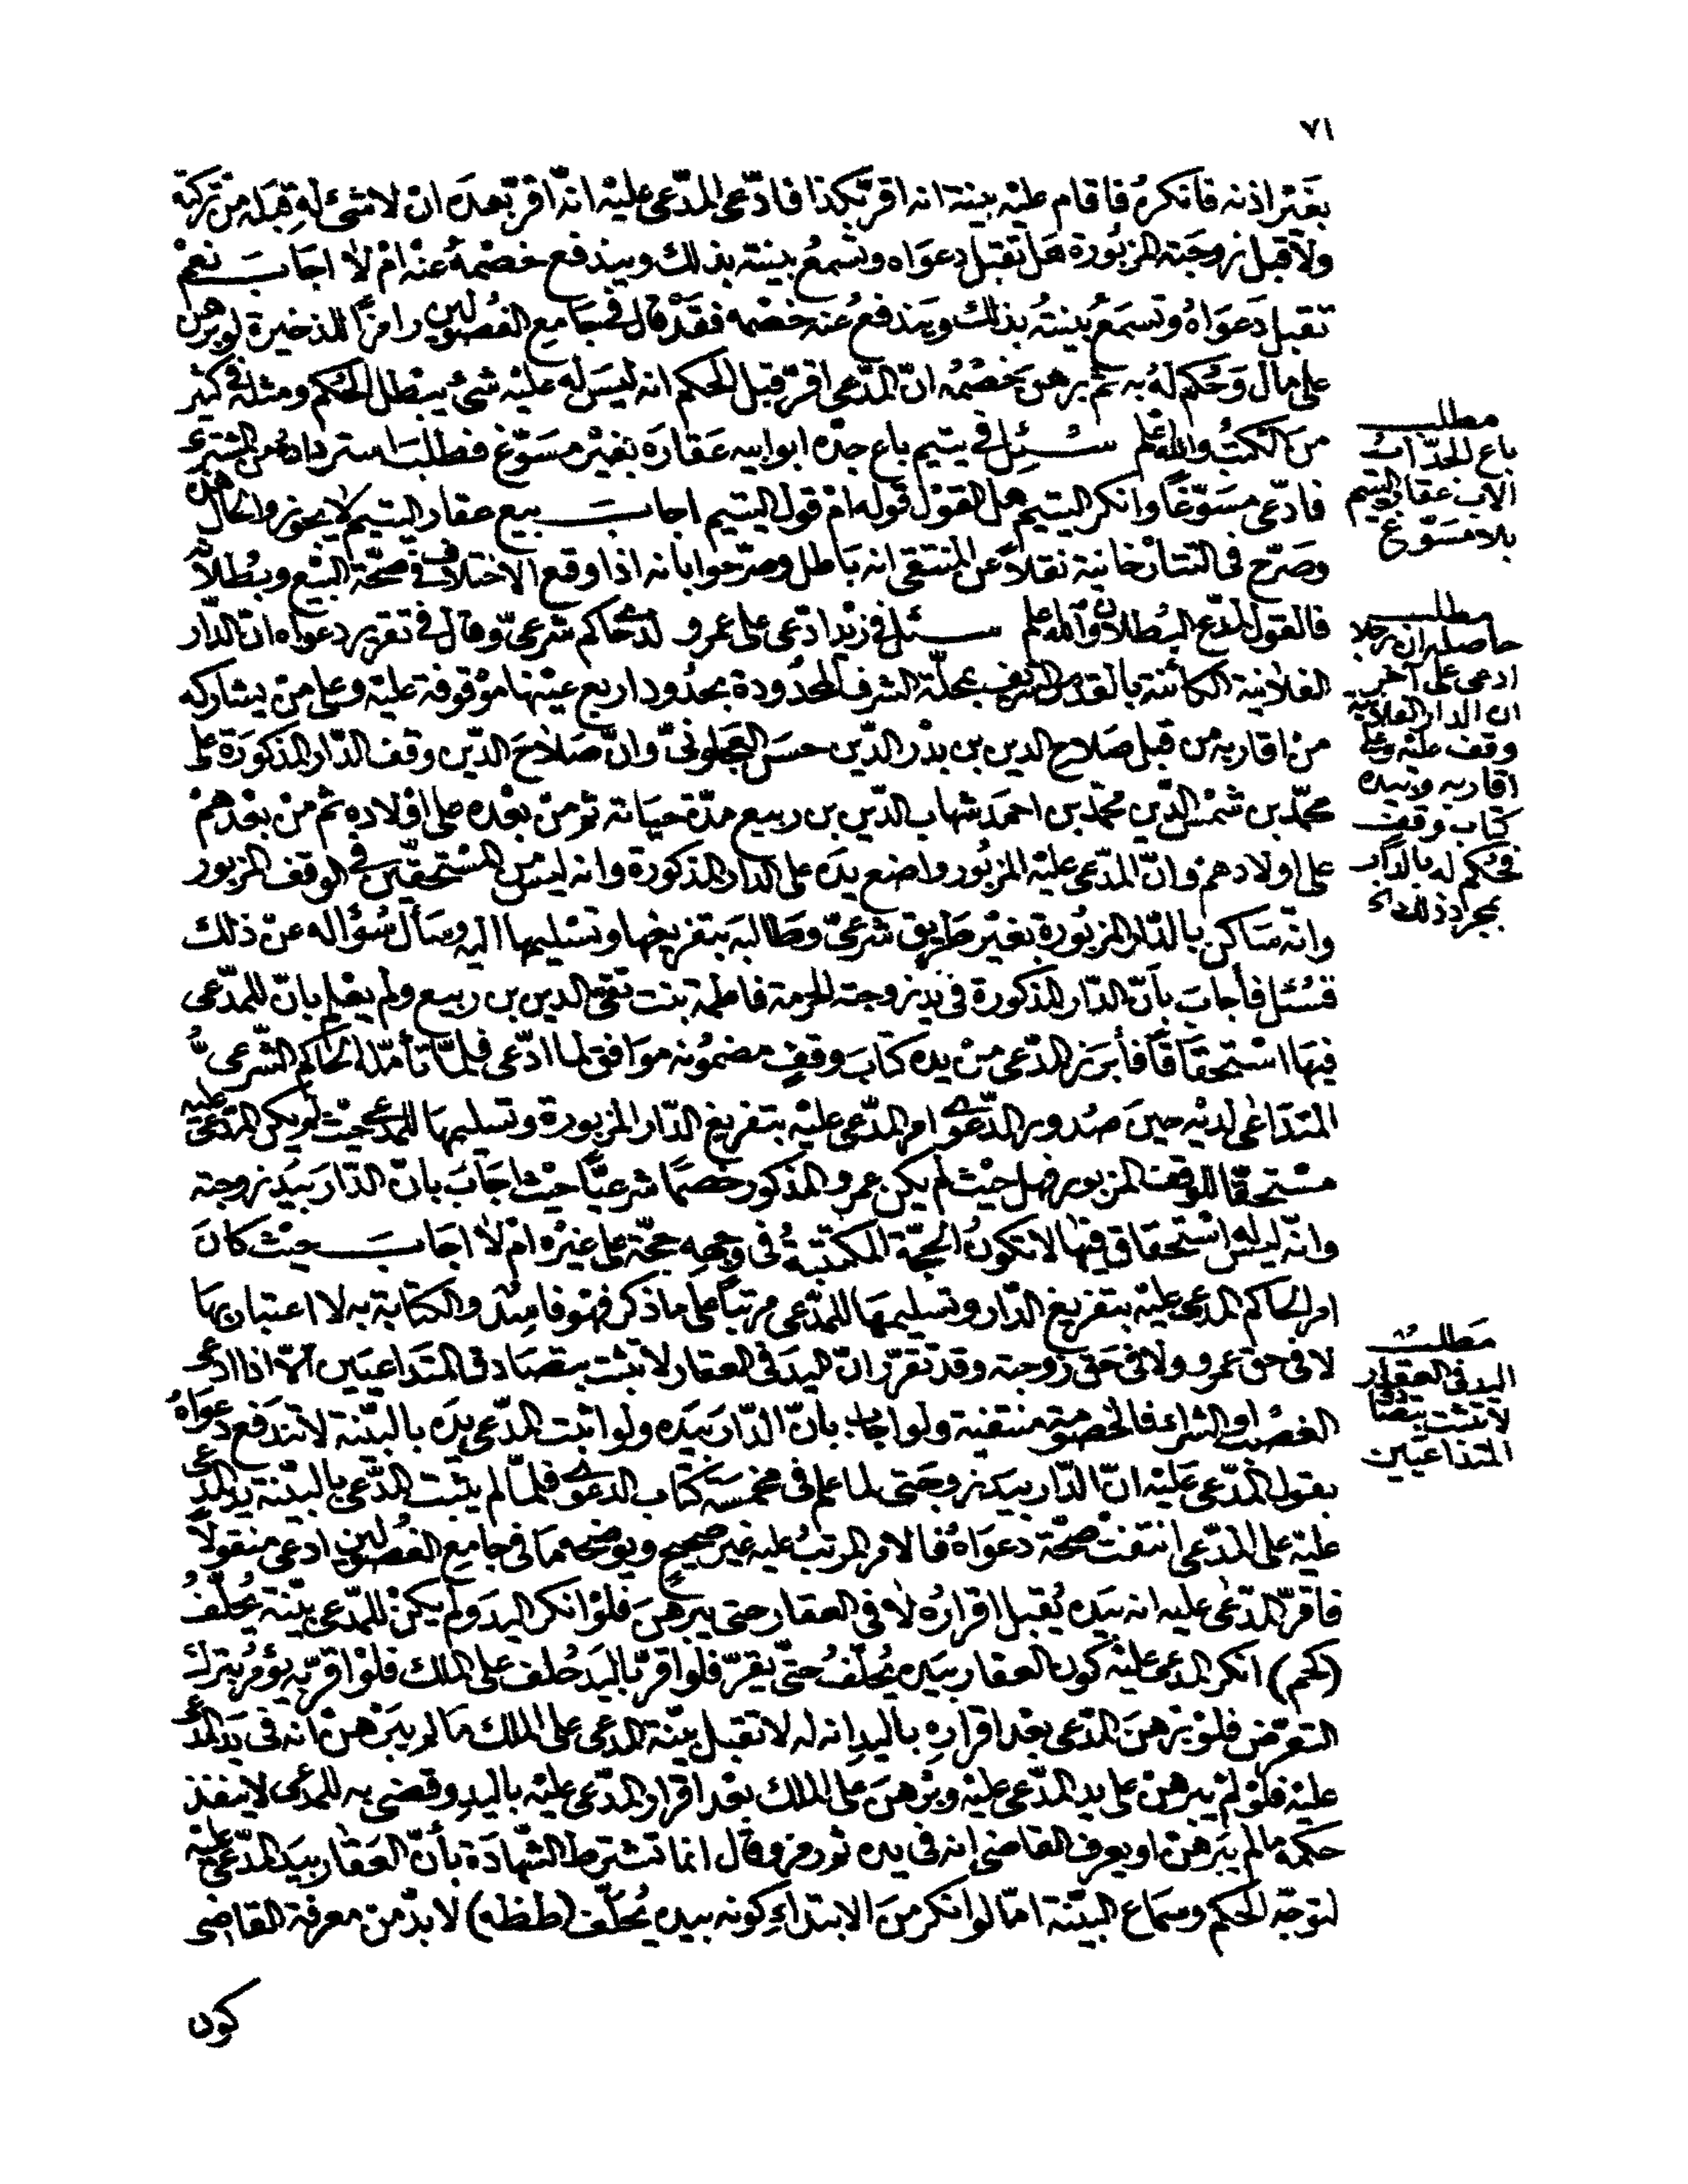 ٧١
بغير اذنه فانكره فاقام عليه بينة انه اقر بكذا فادّعى المدّعى عليه انّه اقرّ بعده ان لا شئ له قبله من تركته
ولا قبل زوجته المزبورة هل تقبل دعواه وتسمع بينته بذلك ويندفع خصمه عنه ام لا اجاب نعم
تقبل دعواه وتسمع بينته بذلك ويندفع عنه خصمه فقد قال في جامع الفصولين رامزا للذخيرة لو برهن
على مال وحكم له به ثم برهن خصمه انّ المدّعى اقرّ قبل الحكم انه ليس له عليه شئ يبطل الحكم ومثله في كثير
من الكتب والله اعلم سئل في يتيم باع جدّه ابو ابيه عقاره بغير مسوّغ فطلب استرداده من المشترى
فادّعى مسوّغا وانكر اليتيم هل القول قوله ام قول اليتيم اجاب بيع عقار اليتيم لا يجوز والحال هذه
وصرّح في التتارخانية نقلا عن المنتقى انه باطل وصرّحوا بانه اذا وقع الاختلاف في صحّة البيع وبطلانه
فالقول لمدّعى البطلان والله اعلم سئل في زيد ادّعى على عمرو لدى حاكم شرعىّ وقال في تقرير دعواه انّ الدّار
الفلانية الكائنة بالقدس الشريف بمحلّة الشرف المحدودة بحدود اربع عيّنها موقوفة عليه وعلى من يشاركه
من اقاربه من قبل صلاح الدين بن بدر الدّين حسن العجلونىّ وانّ صلاح الدّين وقف الدّار المذكورة على
محمّد بن شمس الدّين محمّد بن احمد شهاب الدّين بن ربيع مدّة حياته ثم من بعده على اولاده ثم من بعدهم
على اولادهم وانّ المدّعى عليه المزبور واضع يده على الدار المذكورة وانه ليس من المستحقّين في الوقف المزبور
وانّه ساكن بالدّار المزبورة بغير طريق شرعىّ وطالبه بتفريغها وتسليمها اليه وسأل سؤاله عن ذلك
فسئل فأجاب بأنّ الدّار المذكورة في يد زوجته الحرمة فاطمة بنت تقىّ الدين بن ربيع ولم يعلم بانّ للمدّعى
فيها استحقاقا فأبرز المدّعى من يده كتاب وقف مضمونه موافق لما ادّعى فلمّا تأمّله الحاكم الشّرعىّ
المتداعى لديه حين صدور الدّعوى امر المدّعى عليه بتفريغ الدّار المزبورة وتسليمها للمدعى حيث لم يكن المدّعى عليه
مستحقّا للوقف المزبور فهل حيث لم يكن عمرو المذكور خصما شرعيّا حيث اجاب بانّ الدّار بيد زوجته
وانّه ليس له استحقاق فيها لا تكون الحجّة المكتتبة في وجهه حجّة على غيره ام لا اجاب حيث كان
امر الحاكم المدعى عليه بتفريغ الدّار وتسليمها للمدّعى مرتبا على ما ذكر فهو فاسد والكتابة به لا اعتبار بها
لا في حق عمرو ولا في حق زوجته وقد تقرّر انّ اليد في العقار لا تثبت بتصادق المتداعيين الّا اذا ادعى
الغصب او الشراء فالخصومة منتفية ولو اجاب بانّ الدّار بيده ولو اثبت المدّعى يده بالبيّنة لا تندفع دعواه
بقول المدّعى عليه انّ الدّار بيد زوجتى لما علم في مخمسة كتاب الدعوى فلمّا لم يثبت المدّعى بالبيّنة يد المدّعى
عليه على المدّعى انتفت صحّة دعواه فالامر المرتب عليه غير صحيح ويوضحه ما في جامع الفصولين ادعى منقولا
فاقرّ المدّعى عليه انه بيده يقبل اقراره لا في العقار حتى يبرهن فلو انكر اليد ولم يكن للمدّعى بيّنة يحلّف
(كحم) انكر المدعى عليه كون العقار بيده يحلّف حتّى يقرّ فلو اقرّ باليد حلف على الملك فلو اقرّ به يؤمر بترك
التعرّض فلو برهن المدّعى بعد اقراره باليد انه له لا تقبل بيّنة المدعى على الملك ما لم يبرهن انه في يد المدّعى
عليه فلو لم يبرهن على يد المدّعى عليه وبرهن على الملك بعد اقرار المدّعى عليه باليد وقضى به للمدعى لا ينفذ
حكمه ما لم يبرهن او يعرف القاضى انه في يده ثم رمز وقال انما تشترط الشّهادة بأنّ العقار بيد المدّعى عليه
لتوجّه الحكم وسماع البيّنة امّا لو انكر من الابتداء كونه بيده يحلّف (طظه) لا بدّ من معرفة القاضى
كون
مطلب
باع الجدّ اب
الاب عقار اليتيم
بلا مسوّغ
مطلب
حاصله ان رجلا
ادعى على آخر
ان الدار الفلانية
وقف عليه وعلى
اقاربه وبيده
كتاب وقف
فحكم له بالدار
بمجرد ذلك الخ
مطلب
اليد في العقار
لا تثبت بتصادق
المتداعيين